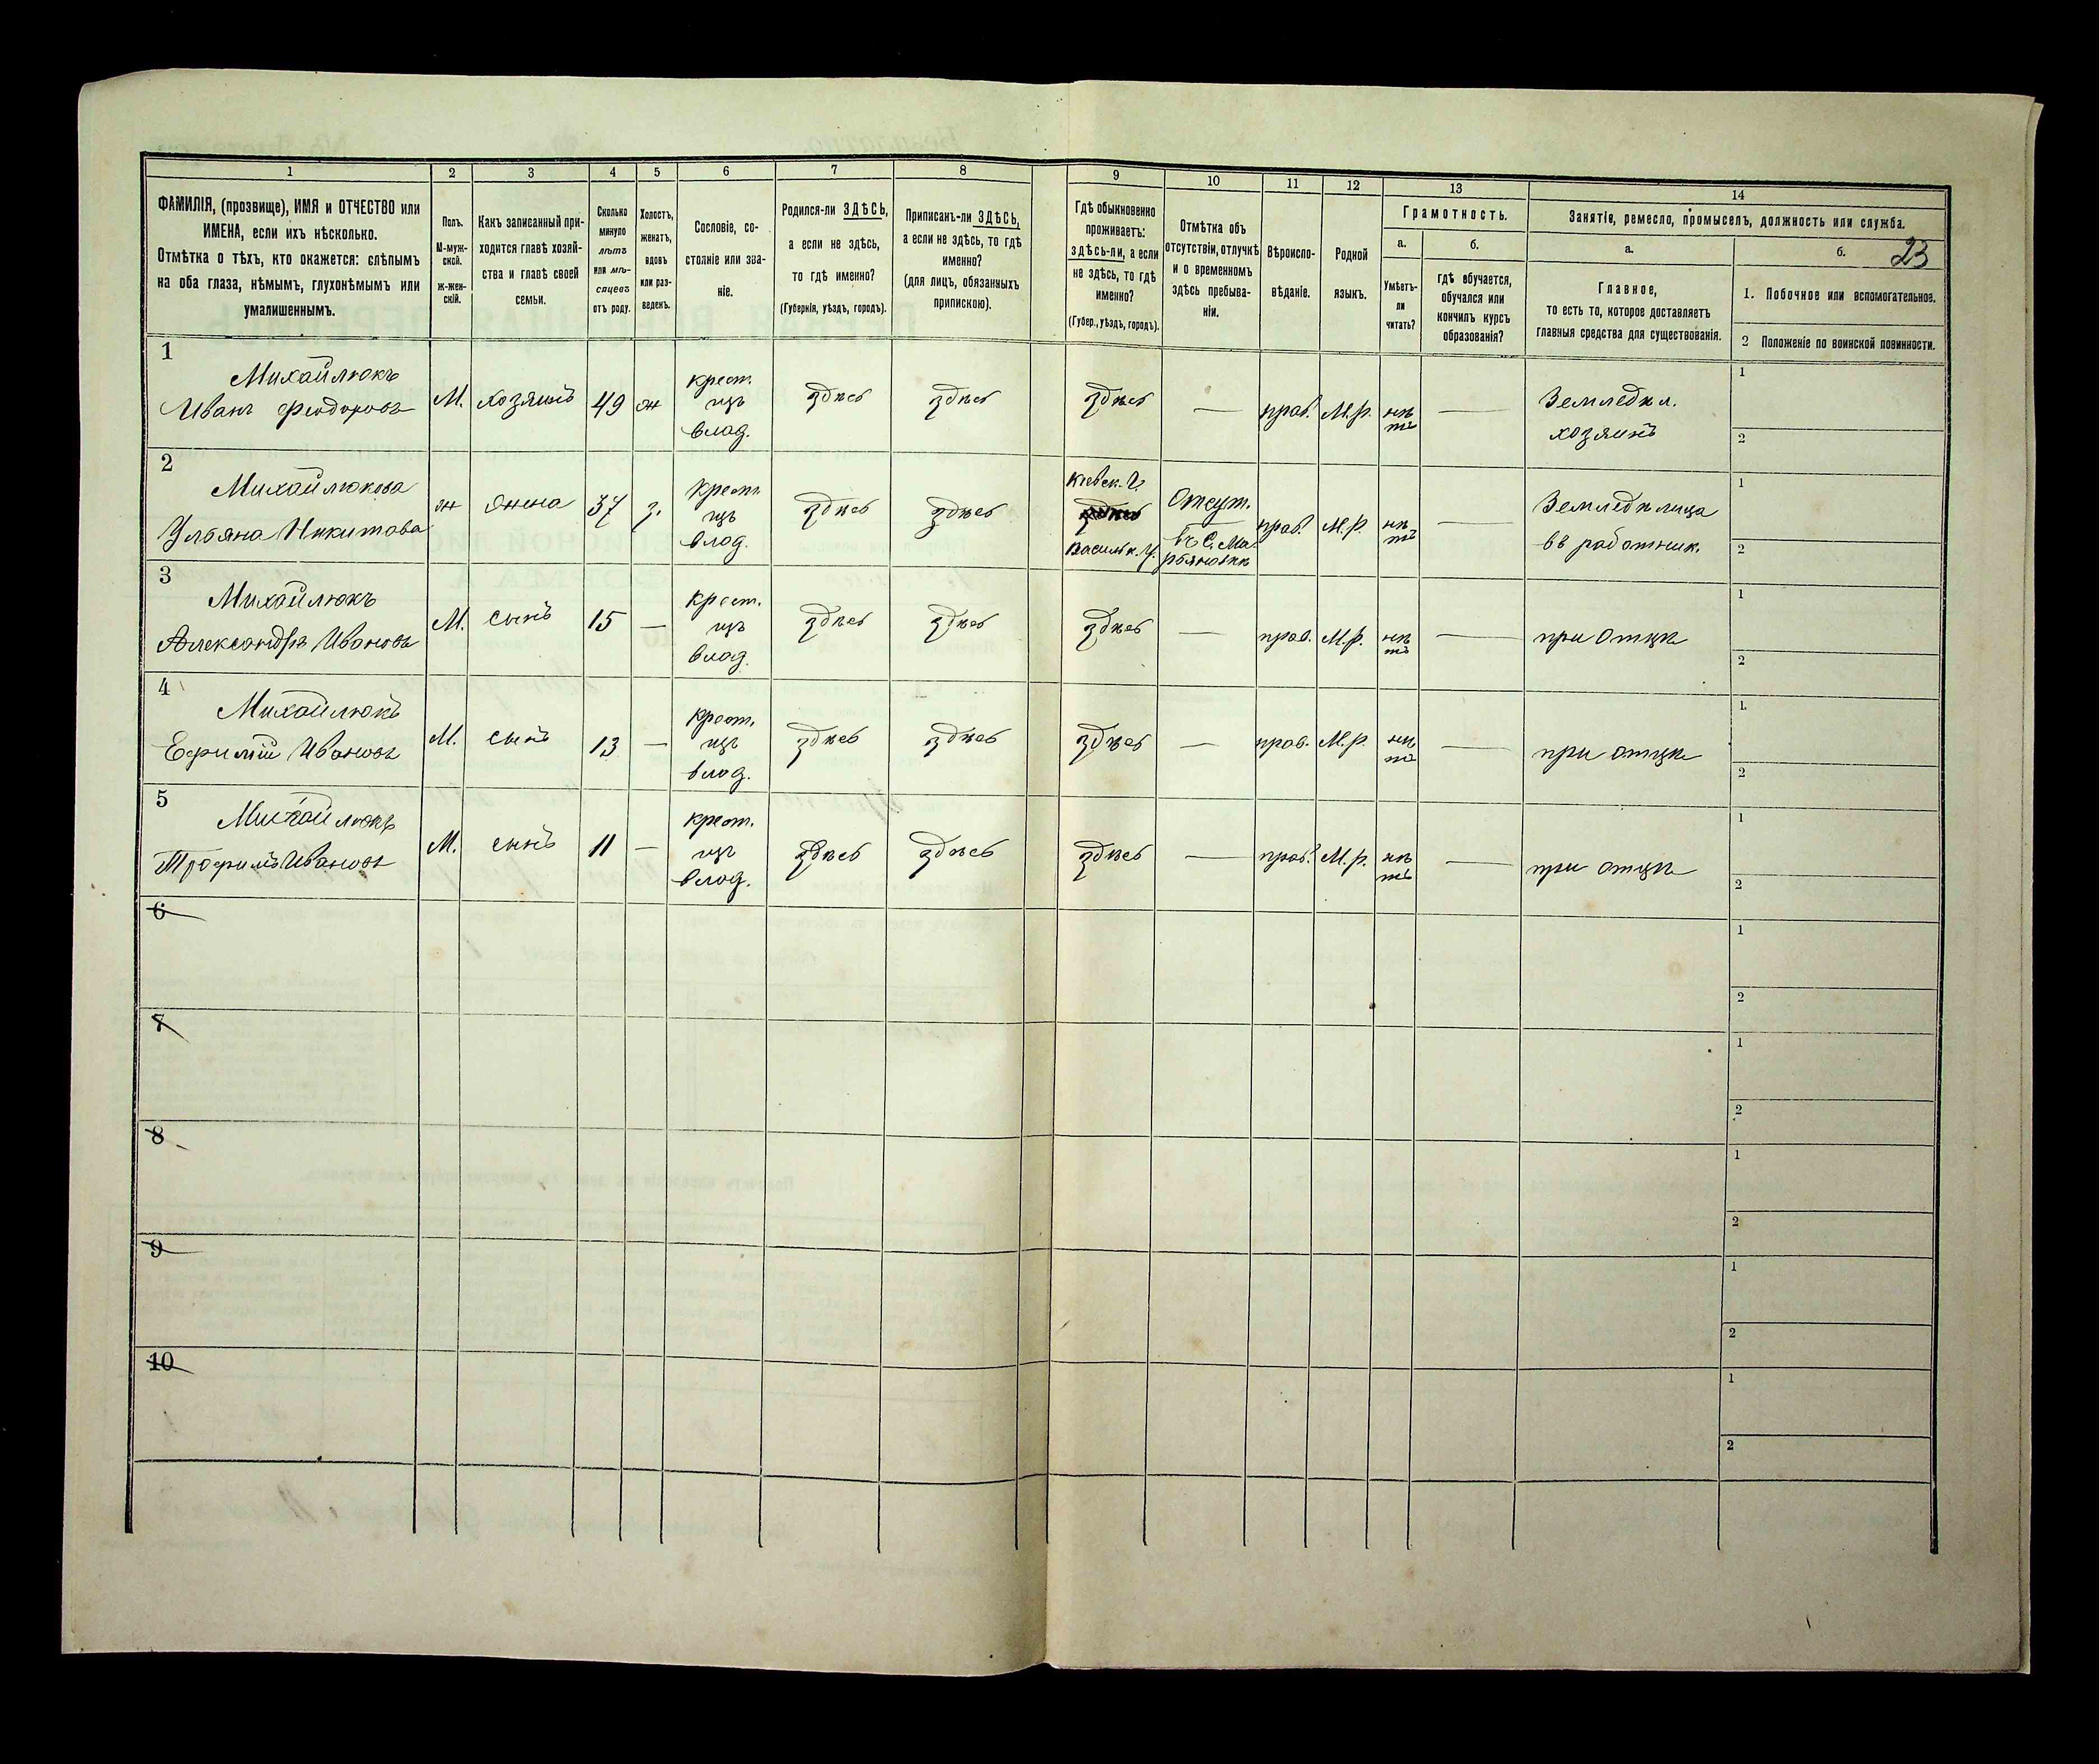 1 2 3 4 5 6 7 8 9 10 11 12 13 14
23
ФАМИЛІЯ, (прозвище), ИМЯ и ОТЧЕСТВО или
ИМЕНА, если ихъ нѣсколько.
Отмѣтка о тѣхъ, кто окажется: слѣпымъ
на оба глаза, нѣмымъ, глухонѣмымъ или
умалишеннымъ.
Полъ.
М-муж-
ской.
ж-жен-
скій.
Какъ записанный при-
ходится главѣ хозяй-
ства и главѣ своей
семьи.
Сколько
минуло
лѣтъ
или мѣ-
сяцевъ
отъ роду.
Холостъ,
женатъ,
вдовъ
или раз-
веденъ.
Сословіе, со-
стояніе или зва-
ніе.
Родился-ли ЗДѢСЬ,
а если не здѣсь,
то гдѣ именно?
(Губернія, уѣздъ, городъ).
Приписанъ-ли ЗДѢСЬ,
а если не здѣсь, то гдѣ
именно?
(для лицъ, обязанныхъ
припискою).
Гдѣ обыкновенно
проживаетъ:
здѣсь-ли, а если
не здѣсь, то гдѣ
именно?
(Губер., уѣздъ, городъ).
Отмѣтка объ
отсутствіи, отлучкѣ
и о временномъ
здѣсь пребыва-
ніи.
Вѣроиспо-
вѣданіе.
Родной
языкъ.
Грамотность.
а.
Умѣетъ-
ли
читать?
б.
гдѣ обучается,
обучался или
кончилъ курсъ
образованія?
Занятіе, ремесло, промыселъ, должность или служба.
а.
Главное,
то есть то, которое доставляетъ
главныя средства для существованія.
б.
1. Побочное или вспомогательное.
2 Положеніе по воинской повинности.
1
Михайлюкъ
Иванъ Феодоровъ
М.
хозяинъ
49
ж
крест.
изъ
влад.
здѣсь
здѣсь
здѣсь
—
прав.
М.р.
нѣ
тъ
—
Земледѣл.
хозяинъ
1
2
2
Михайлюкова
Ульяна Никитова
ж
жена
37
з.
крест.
изъ
влад.
здѣсь
здѣсь
Кіевск. Г.
здѣсь
Васильк. У.
Отсут.
въ С. Ма-
рьяновкѣ
прав.
М.р.
нѣ
тъ
—
Земледѣлица
въ работник.
1
2
3
Михайлюкъ
Александръ Ивановъ
М.
сынъ
15
—
крест.
изъ
влад.
здѣсь
здѣсь
здѣсь
—
прав.
М.р.
нѣ
тъ
—
при отцѣ
1
2
4
Михайлюкъ
Ефимій Ивановъ
М.
сынъ
13
—
крест.
изъ
влад.
здѣсь
здѣсь
здѣсь
—
прав.
М.р.
нѣ
тъ
—
при отцѣ
1.
2
5
Михайлюкъ
Трофимъ Ивановъ
М.
сынъ
11
—
крест.
изъ
влад.
здѣсь
здѣсь
здѣсь
—
прав.
М.р.
нѣ
тъ
—
при отцѣ
1
2
6
1
2
7
1
2
8
1
2
9
1
2
10
1
2